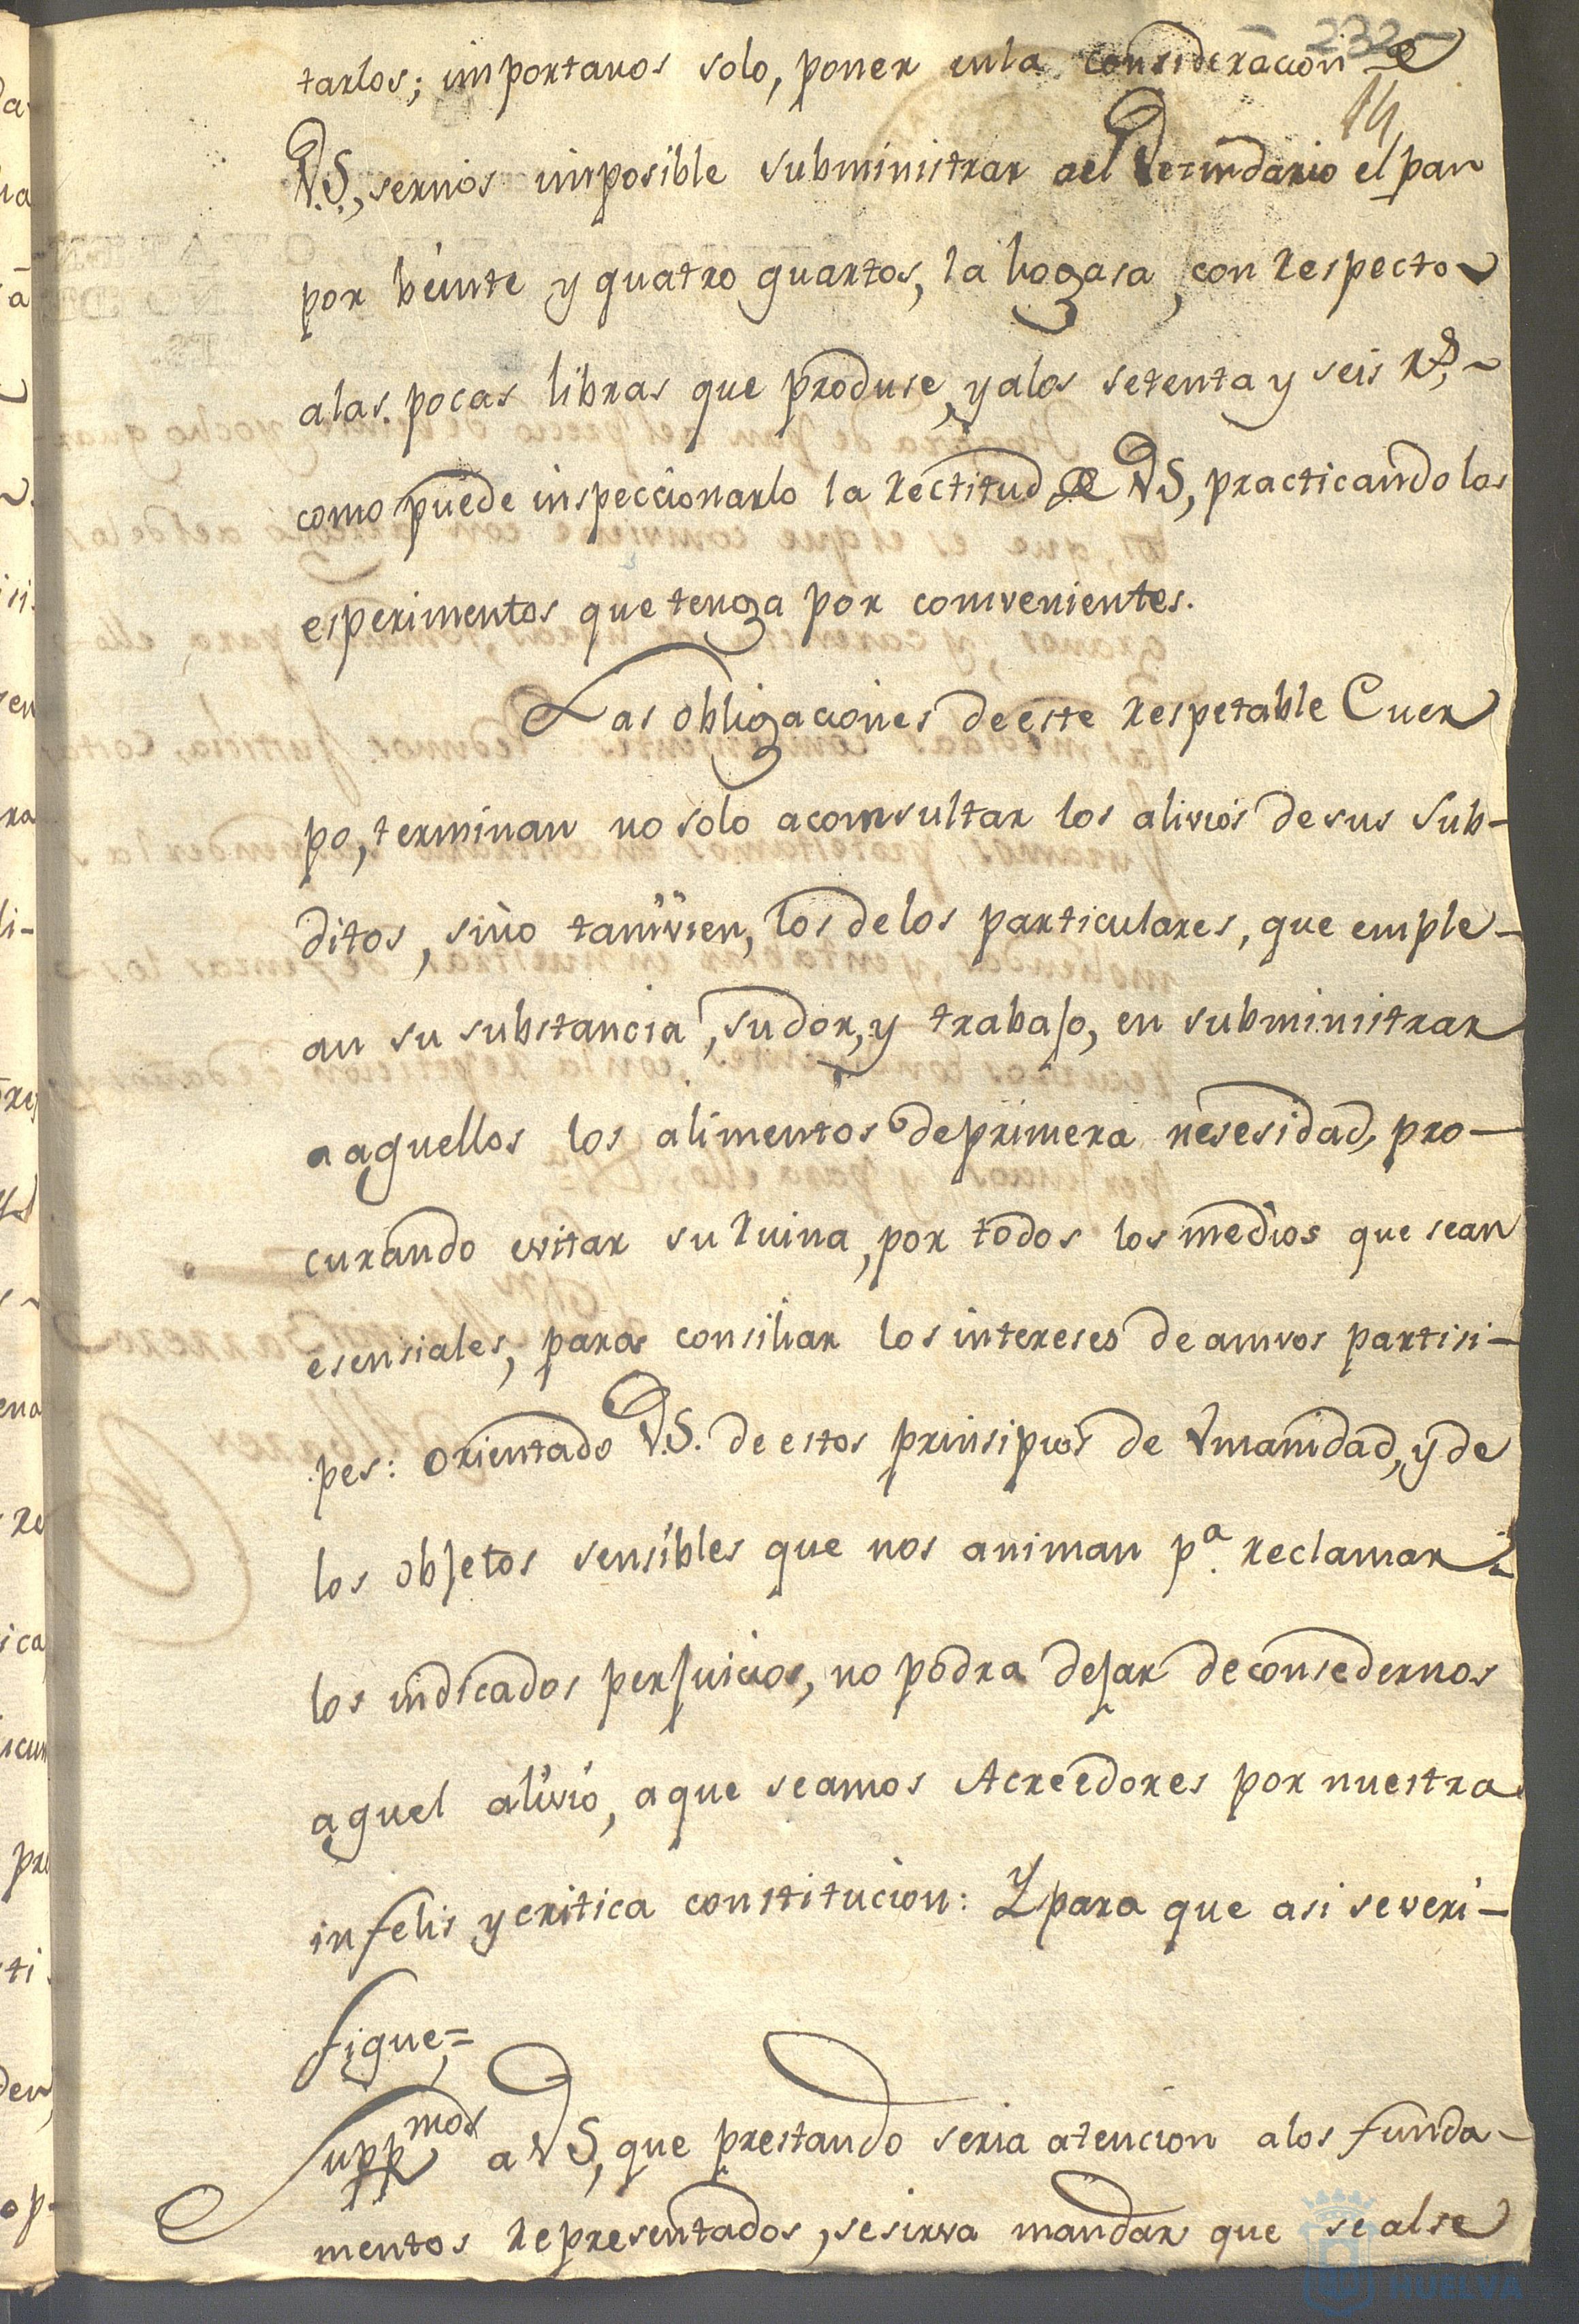 232
14
tarlos; importanos solo, poner enla consideracion de
V.S., sernos imposible subministrar ael Vecindario el pan
por beinte y quatro quartos, la hogasa, con respecto
alas pocas libras que produse, y alos setenta y seis rs.
como puede inspeccionarlo la rectitud de VS, practicando los
esperimentos que tenga por convenientes.
Las obligaciones de este respetable Cuer
po, terminan no solo aconsultar los alivios de sus Sub-
ditos, sino tamvien, los de los particulares, que emple-
an su substancia, sudor, y trabajo, en subministrar
a aquellos los alimentos de primera nesesidad, pro-
curando evitar su ruina, por todos los medios que sean
esensiales, para consiliar los intereses de amvos partisi-
pes: orientado V.S. de estos prinsipios de Vmanidad, y de
los objetos sensibles que nos animan pa. reclamar
los indicados perjuicios, no podra dejar de consedernos
aquel alivio, a que seamos Acreedores por nuestra
infelis y critica constitucion: Y para que asi se veri-
fique,=
Suppmos a VS, que prestando seria atencion a los funda-
mentos representados, se sirva mandar que se alse
HUELVA